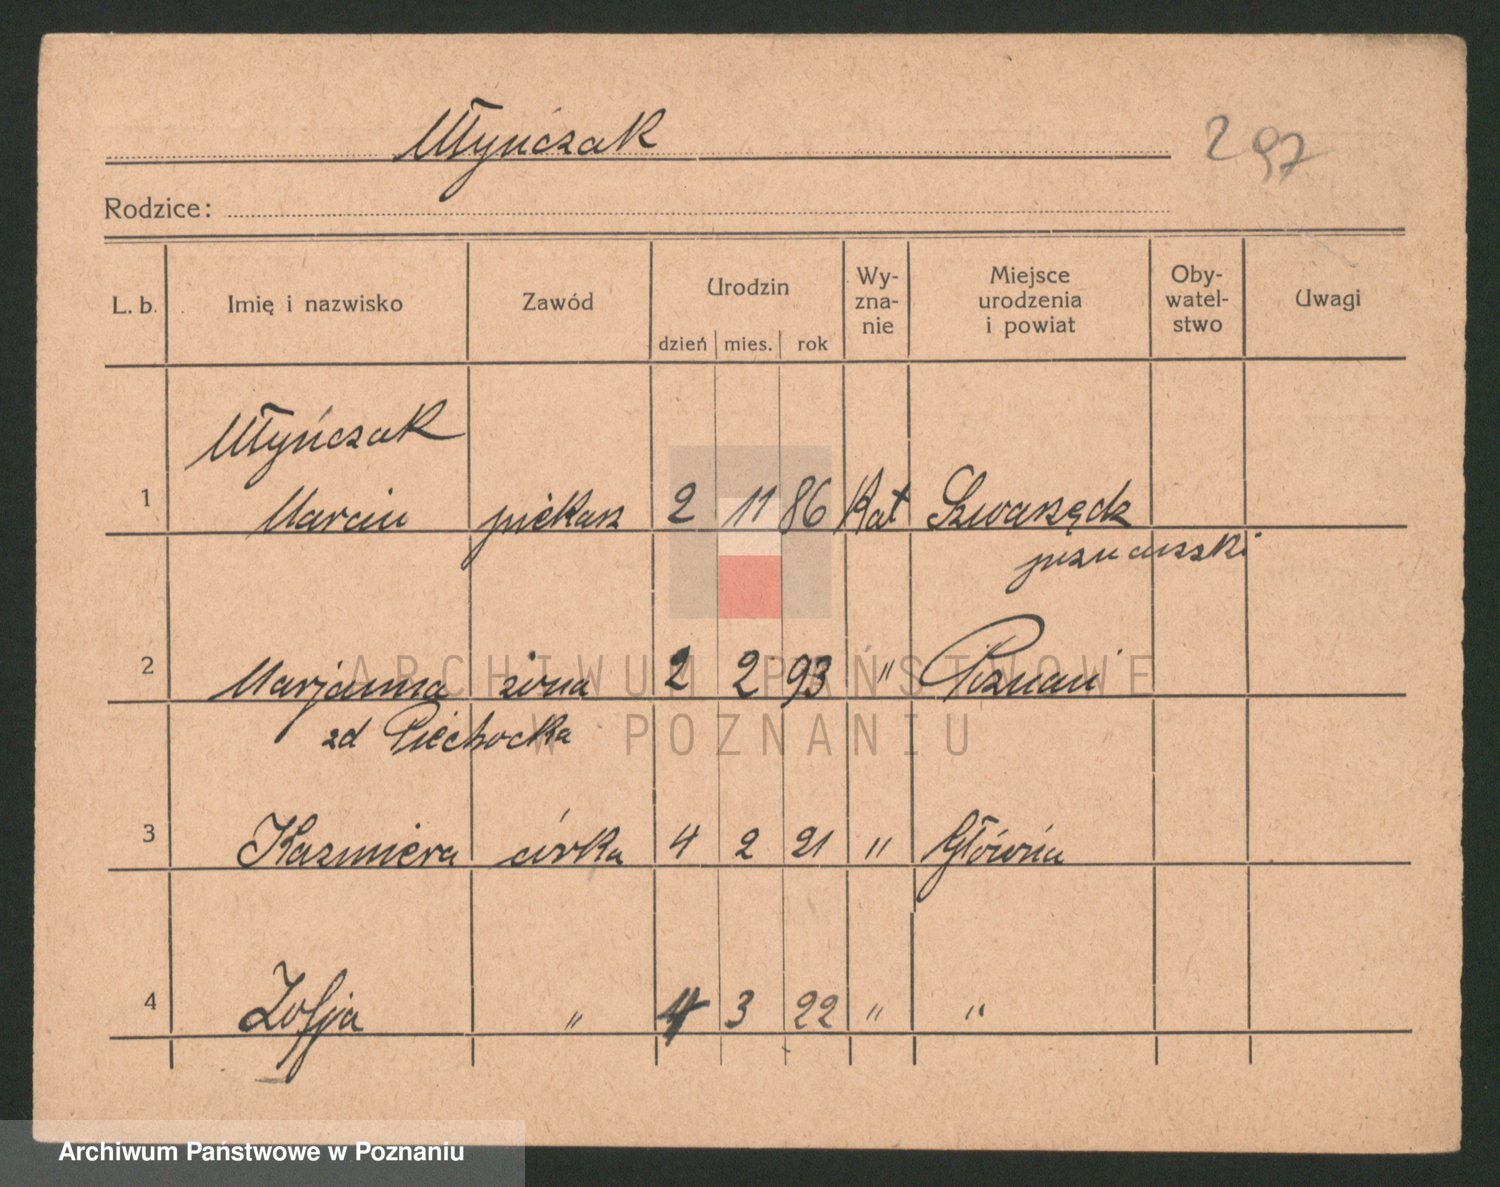 Młyńczak
297
Rodzice:
L. b. Imię i nazwisko Zawód Urodzin Wy-zna-nie Miejsce urodzenia i powiat Oby-watel-stwo Uwagi
dzień mies. rok
Młyńczak
1 Marcin piekarz 2 11 86 Kat Swarzędz
poznański
2 Marjanna żona 2 2 93 " Poznań
zd Piechocka
3 Kazimiera córka 4 2 21 " Główna
4 Zofja " 4 3 22 " "
ARCHIWUM PAŃSTWOWE
W POZNANIU
Archiwum Państwowe w Poznaniu